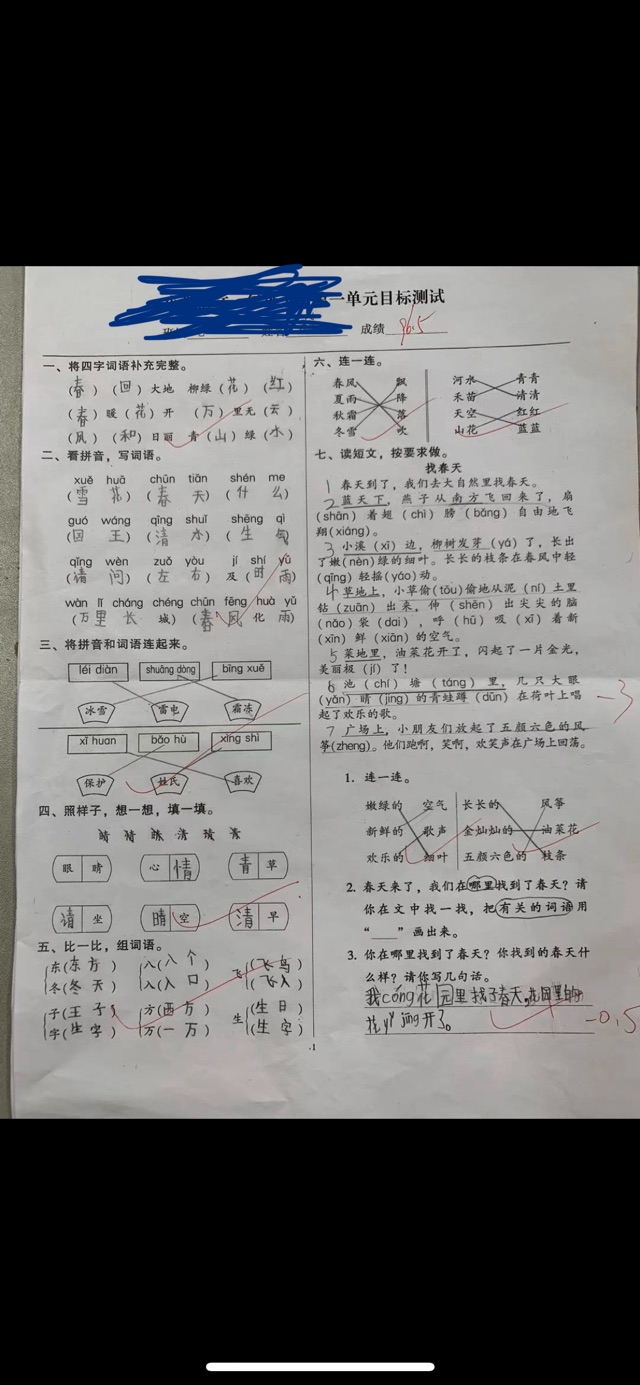 一单元目标测试
成绩 96.5
一、将四字词语补充完整。
(春)(回)大地 柳绿(花)(红)
(春)暖(花)开 (万)里无(云)
(风)(和)日丽 青(山)绿(水)
二、看拼音，写词语。
xuě huā chūn tiān shén me
(雪 花) (春 天) (什 么)
guó wáng qīng shuǐ shēng qì
(国 王) (清 水) (生 气)
qǐng wèn zuǒ yòu jí shí yǔ
(请 问) (左 右) 及(时 雨)
wàn lǐ cháng chéng chūn fēng huà yǔ
(万 里 长 城) (春 风 化 雨)
三、将拼音和词语连起来。
léi diàn shuāng dòng bīng xuě
冰雪 雷电 霜冻
xǐ huan bǎo hù xìng shì
保护 姓氏 喜欢
四、照样子，想一想，填一填。
眼 睛 心 情 青 草
请 坐 晴 空 清 早
五、比一比，组词语。
东(东方) 八(八个) 飞(飞鸟)
冬(冬天) 入(入口) (飞入)
子(王子) 方(西方) 生(生日)
字(生字) 万(一万) (生字)
·1
六、连一连。
春风 飘 河水 青青
夏雨 降 禾苗 清清
秋霜 落 天空 红红
冬雪 吹 山花 蓝蓝
七、读短文，按要求做。
找春天
1 春天到了，我们去大自然里找春天。
2 蓝天下，燕子从南方飞回来了，扇
(shān)着翅(chì)膀(bǎng)自由地飞
翔(xiáng)。
3 小溪(xī)边，柳树发芽(yá)了，长出
了嫩(nèn)绿的细叶。长长的枝条在春风中轻
(qīng)轻摇(yáo)动。
4 草地上，小草偷(tōu)偷地从泥(ní)土里
钻(zuān)出来，伸(shēn)出尖尖的脑
(nǎo)袋(dai)，呼(hū)吸(xī)着新
(xīn)鲜(xiān)的空气。
5 菜地里，油菜花开了，闪起了一片金光，
美丽极(jí)了！
6 池(chí)塘(táng)里，几只大眼
(yǎn)睛(jing)的青蛙蹲(dūn)在荷叶上唱
起了欢乐的歌。
-3
7 广场上，小朋友们放起了五颜六色的风
筝(zheng)。他们跑啊，笑啊，欢笑声在广场上回荡。
1. 连一连。
嫩绿的 空气 长长的 风筝
新鲜的 歌声 金灿灿的 油菜花
欢乐的 细叶 五颜六色的 枝条
2. 春天来了，我们在哪里找到了春天？请
你在文中找一找，把有关的词语用
“____”画出来。
3. 你在哪里找到了春天？你找到的春天什
么样？请你写几句话。
我cóng花园里找了春天。花园里的
花yǐ jīng开了。
-0.5